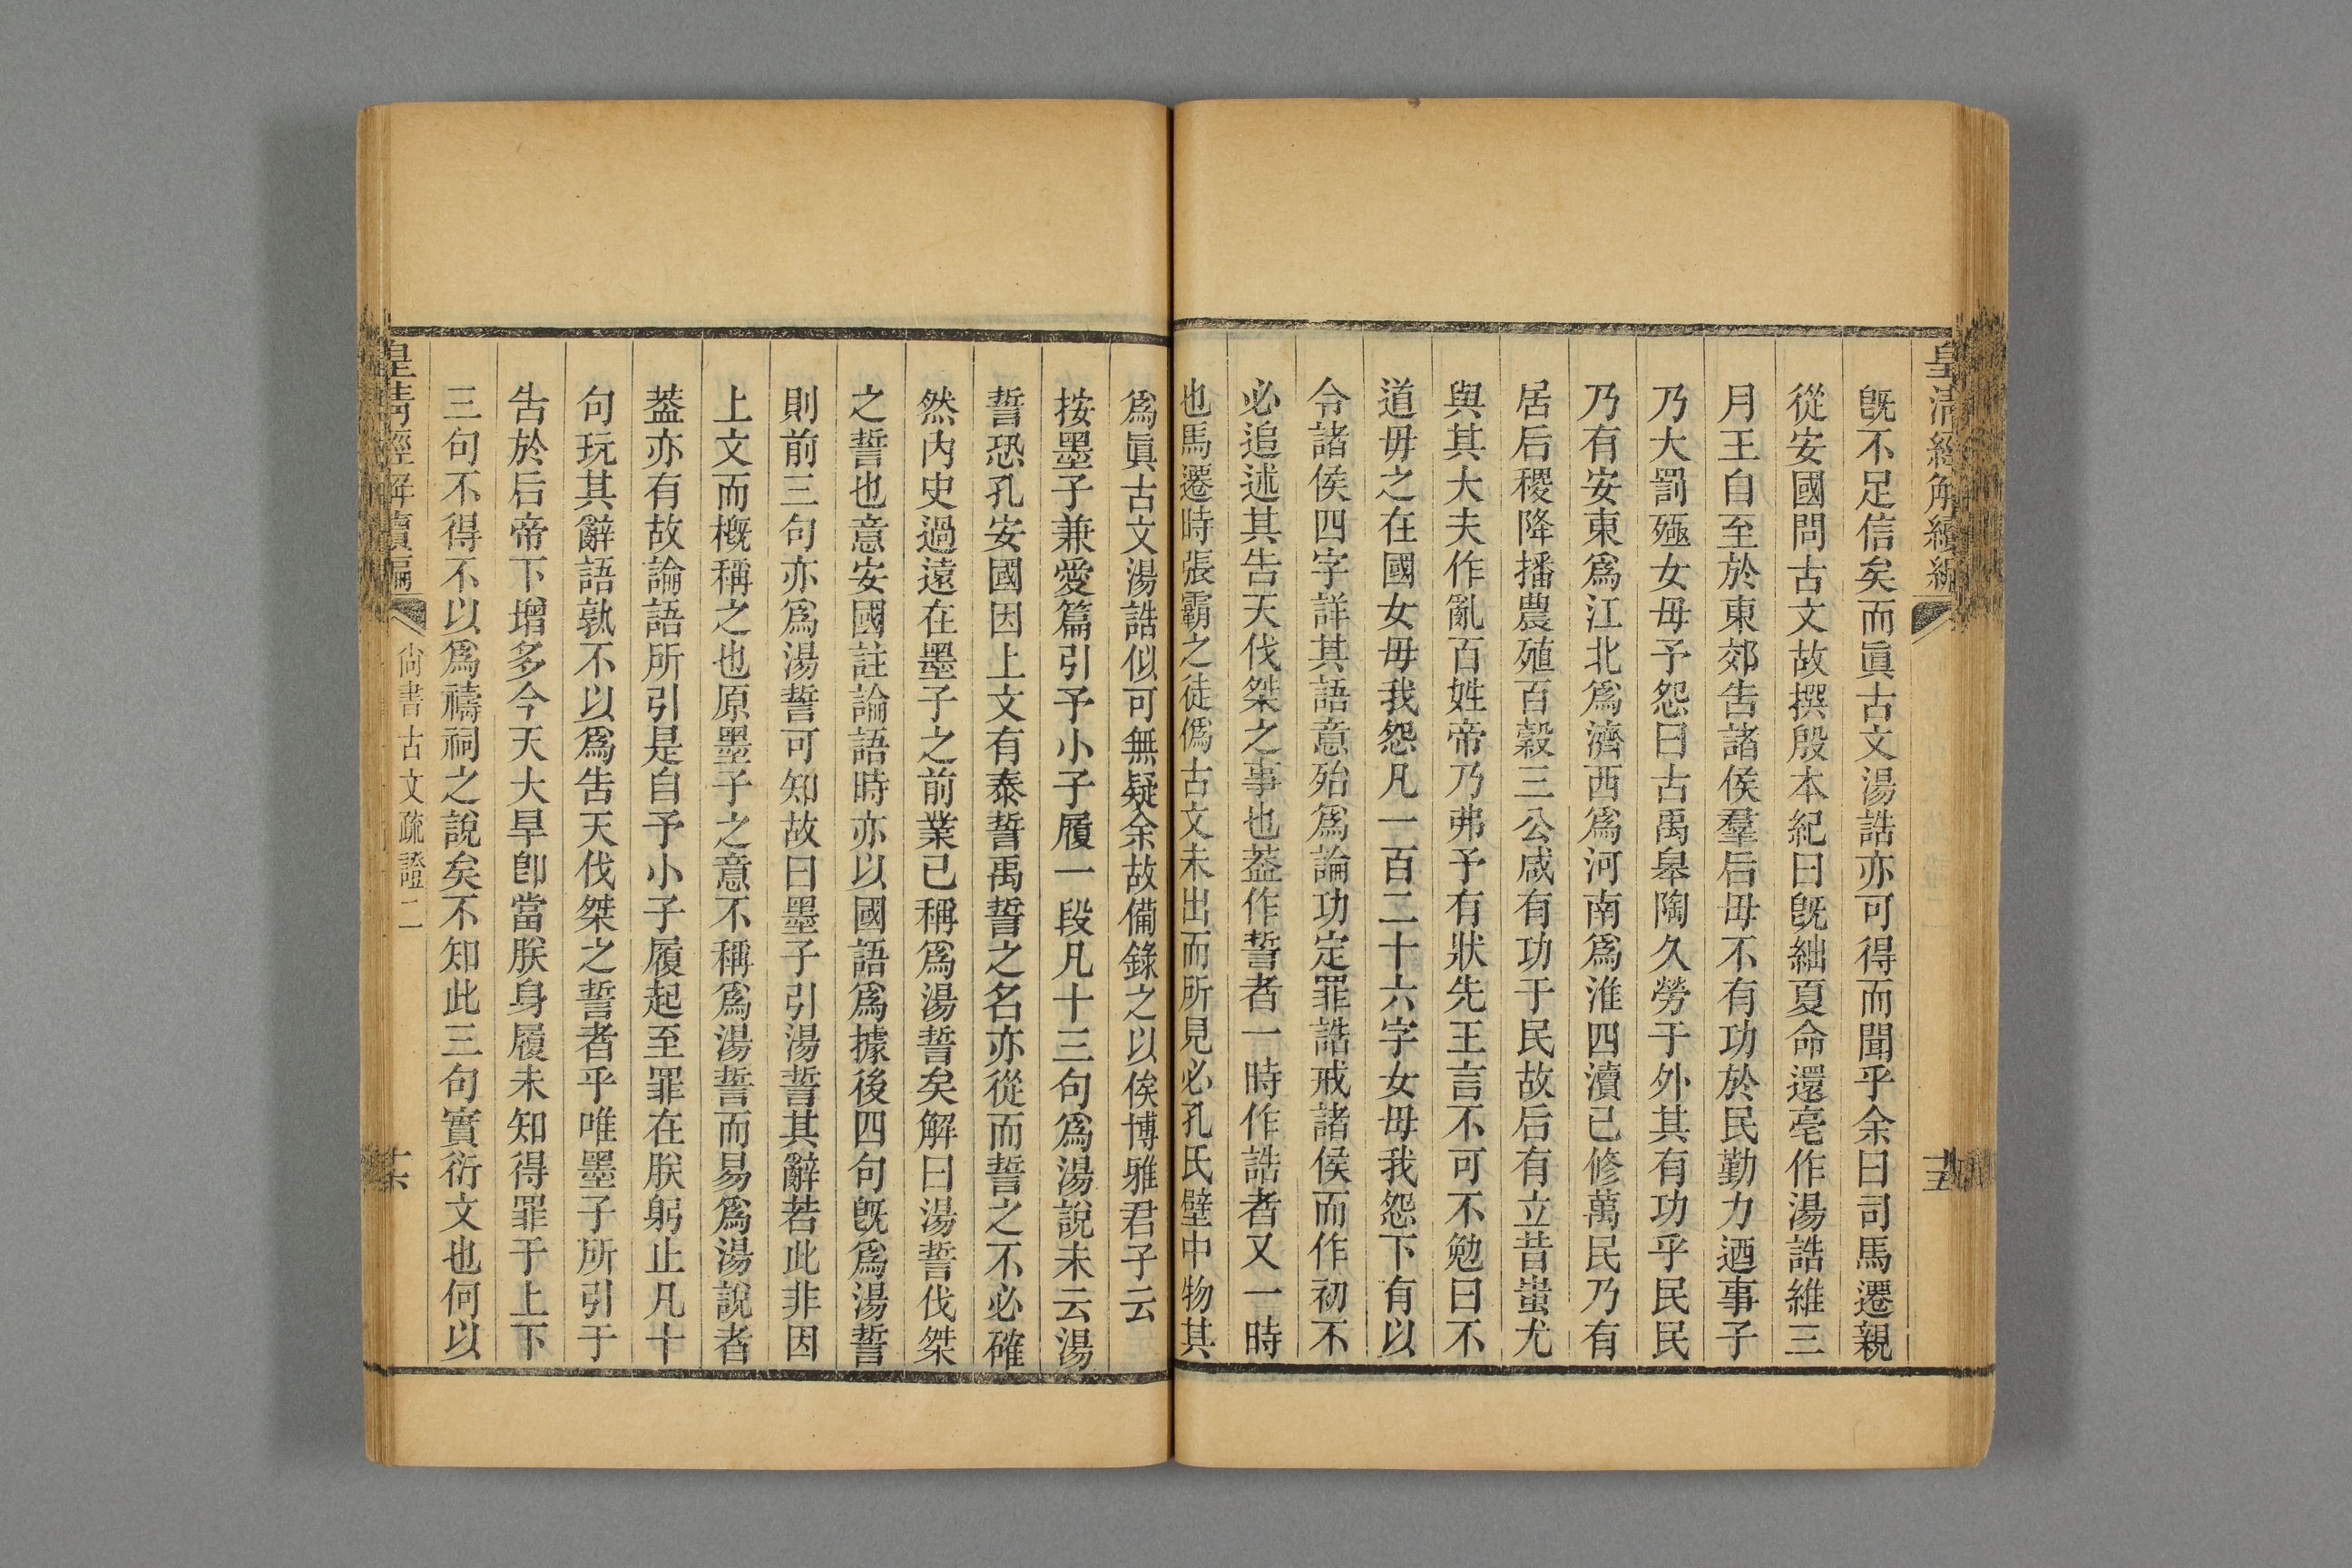 皇清經解續編
十五
旣不足信矣而眞古文湯誥亦可得而聞乎余曰司馬遷親
從安國問古文故撰殷本紀曰旣絀夏命還亳作湯誥維三
月王自至於東郊吿諸侯羣后毋不有功於民勤力迺事子
乃大罰殛女毋予怨曰古禹皋陶久勞于外其有功乎民民
乃有安東爲江北爲濟西爲河南爲淮四瀆已修萬民乃有
居后稷降播農殖百穀三公咸有功于民故后有立昔蚩尤
與其大夫作亂百姓帝乃弗予有狀先王言不可不勉曰不
道毋之在國女毋我怨凡一百二十六字女毋我怨下有以
令諸侯四字詳其語意殆爲論功定罪誥戒諸侯而作初不
必追述其吿天伐桀之事也蓋作誓者一時作誥者又一時
也馬遷時張霸之徒僞古文未出而所見必孔氏壁中物其
爲眞古文湯誥似可無疑余故備錄之以俟博雅君子云
按墨子兼愛篇引予小子履一段凡十三句爲湯說未云湯
誓恐孔安國因上文有泰誓禹誓之名亦從而誓之不必確
然內史過遠在墨子之前業已稱爲湯誓矣解曰湯誓伐桀
之誓也意安國註論語時亦以國語爲據後四句旣爲湯誓
則前三句亦爲湯誓可知故曰墨子引湯誓其辭若此非因
上文而概稱之也原墨子之意不稱爲湯誓而易爲湯說者
蓋亦有故論語所引是自予小子履起至罪在朕躬止凡十
句玩其辭語孰不以爲吿天伐桀之誓者乎唯墨子所引于
吿於后帝下增多今天大旱卽當朕身履未知得罪于上下
三句不得不以爲禱祠之說矣不知此三句實衍文也何以
皇清經解續編
尚書古文疏證二
十六